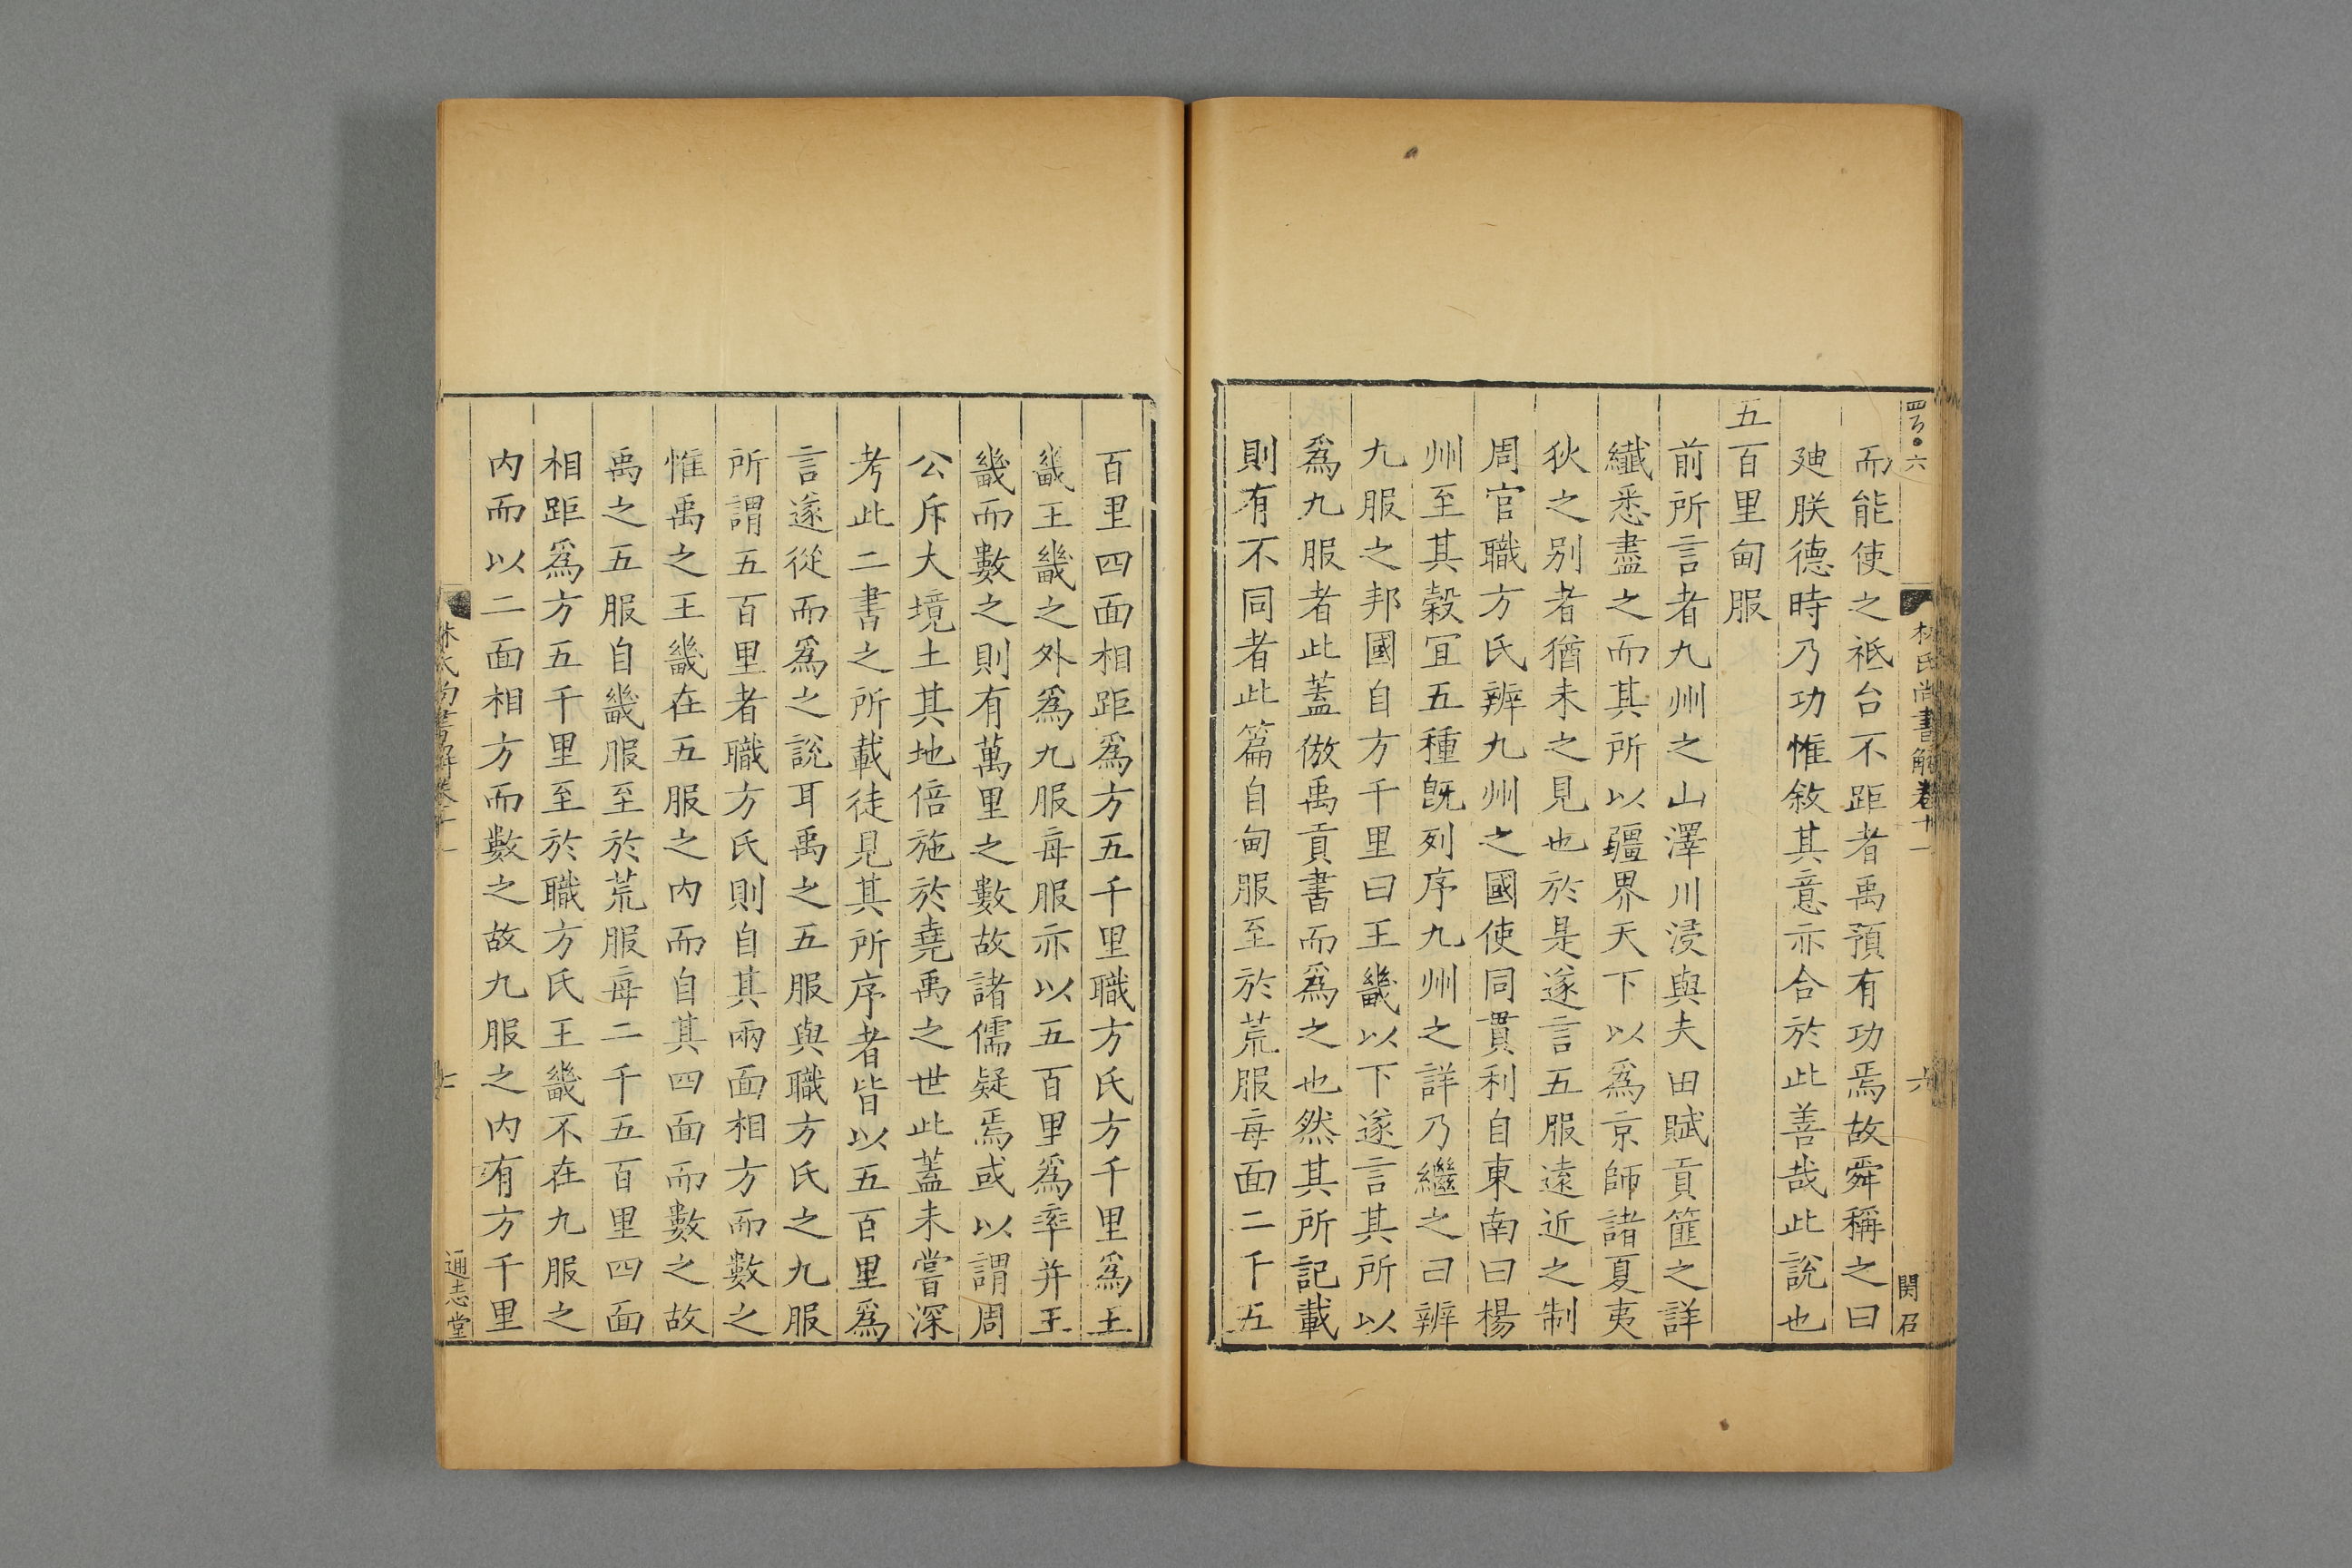 林氏尚書解卷十一
六
関召
而能使之祗台不距者禹預有功焉故舜稱之曰
廸朕德時乃功惟敘其意亦合於此善哉此說也
五百里甸服
前所言者九州之山澤川浸與夫田賦貢篚之詳
纎悉盡之而其所以疆界天下以爲京師諸夏夷
狄之别者猶未之見也於是遂言五服遠近之制
周官職方氏辨九州之國使同貫利自東南曰楊
州至其穀宜五種旣列序九州之詳乃繼之曰辨
九服之邦國自方千里曰王畿以下遂言其所以
爲九服者此蓋倣禹貢書而爲之也然其所記載
則有不同者此篇自甸服至於荒服每面二千五
百里四面相距爲方五千里職方氏方千里爲王
畿王畿之外爲九服每服亦以五百里爲率并王
畿而數之則有萬里之數故諸儒疑焉或以謂周
公斥大境土其地倍蓰於堯禹之世此蓋未嘗深
考此二書之所載徒見其所序者皆以五百里爲
言遂從而爲之說耳禹之五服與職方氏之九服
所謂五百里者職方氏則自其兩面相方而數之
惟禹之王畿在五服之內而自其四面而數之故
禹之五服自畿服至於荒服每二千五百里四面
相距爲方五千里至於職方氏王畿不在九服之
內而以二面相方而數之故九服之內有方千里
林氏尚書解卷十一
七
通志堂